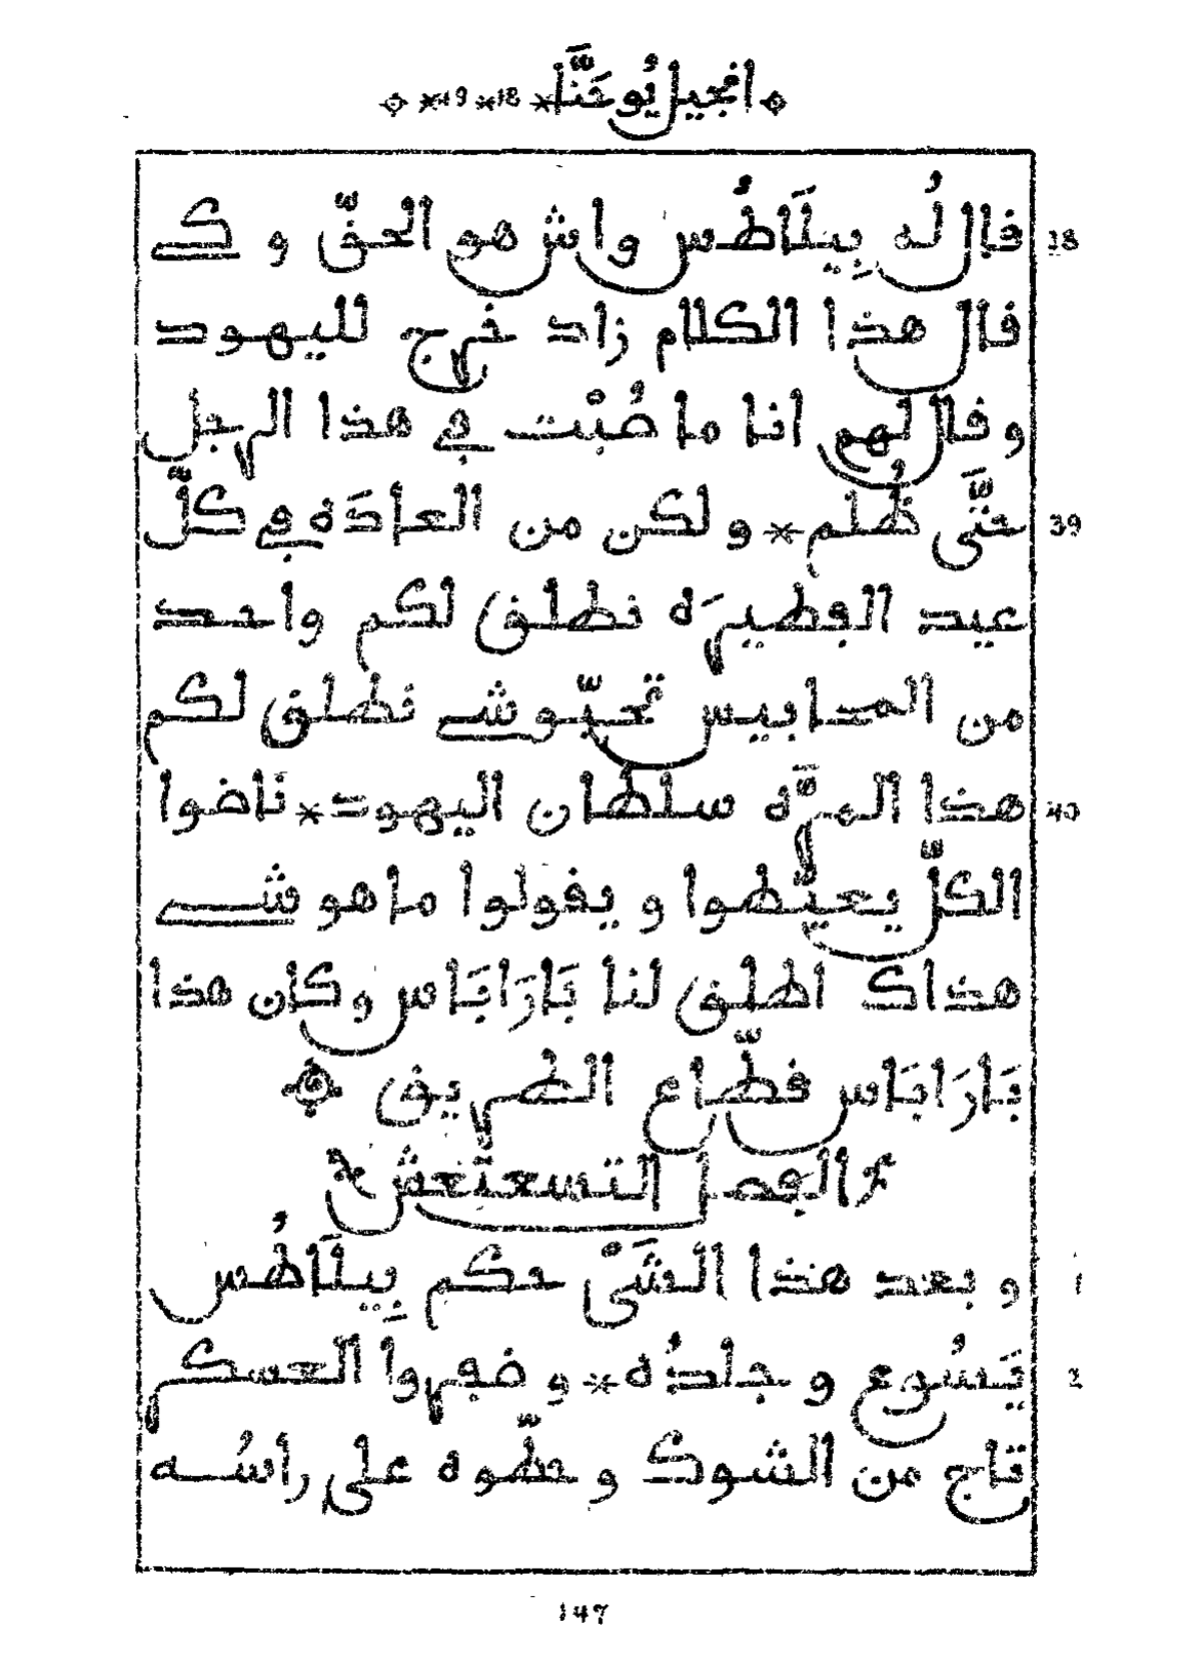 انجيل يُوحَنَّا * 18 * 19 *
38 قال لُه بِيلَاطُس واش هو الحقّ و كي
قال هذا الكلام زاد خرج لليهود
وقال لهم انا ما صُبْت في هذا الرجل
39 حتَّى ظُلم * ولكن من العادَة في كلّ
عيد الفطيرَة نطلق لكم واحد
من المحابيس تحبّوشي نطلق لكم
40 هذا المرَّة سلطان اليهود * نَاضوا
الكلّ يعيّطوا و يقولوا ما هو شي
هذاك اطلق لنا بَارَابَاس وكان هذا
بَارَابَاس قطّاع الطريق
الفصل التسعتعش
1 و بعد هذا الشَّيْ حكم بِيلَاطُس
2 يَسُوع و جلدُه * و ضفروا العسكر
تاج من الشوك و حطّوه على راسُه
147